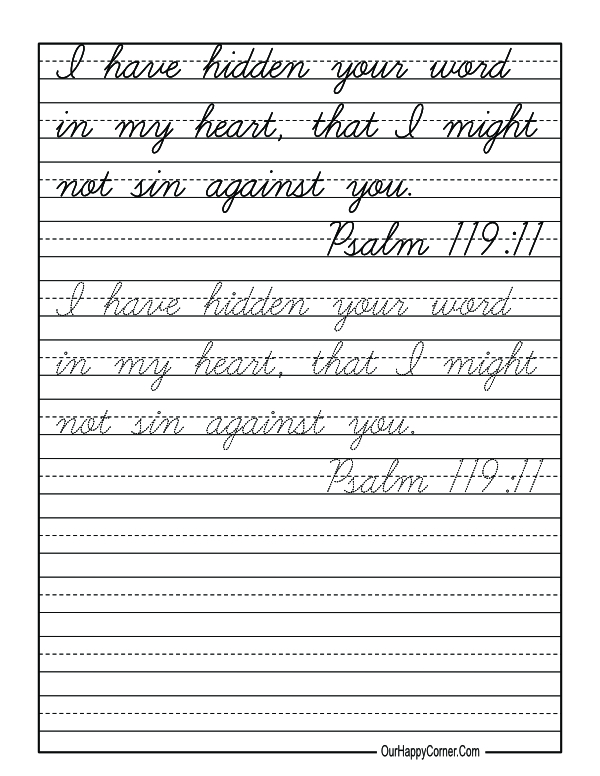 I have hidden your word
in my heart, that I might
not sin against you.
Psalm 119:11
I have hidden your word
in my heart, that I might
not sin against you.
Psalm 119:11
OurHappyCorner.Com